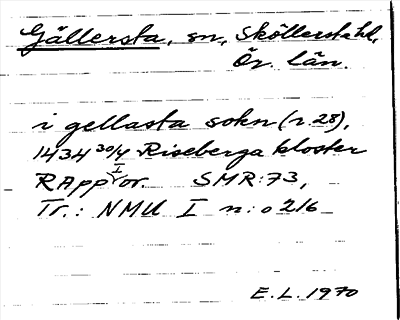 Gällersta, sn, Sköllersta hd,
Ör. län.
i gellasta sokn (r. 28),
1434 30/4 Riseberga kloster
RApp I or. SMR:73,
Tr.: NMU I n:o 216
E.L. 1970